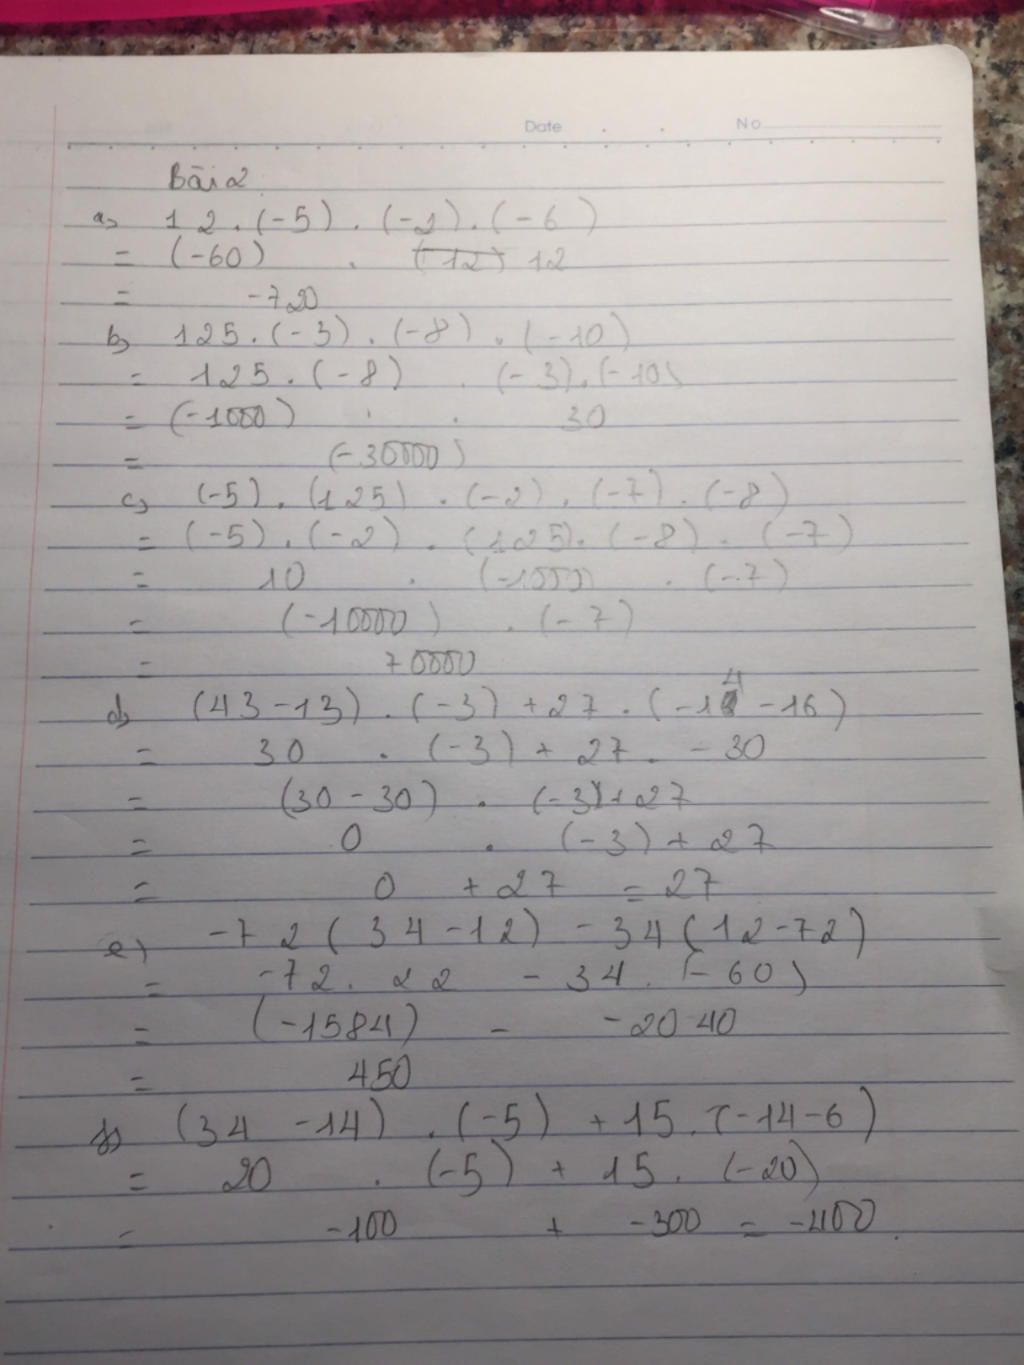 Date No
Bài 2
a, 12 . (-5) . (-2) . (-6)
= (-60) . (12) 12
= -720
b, 125 . (-3) . (-8) . (-10)
= 125 . (-8) . (-3) . (-10)
= (-1000) . . 30
= (-30000)
c, (-5) . (125) . (-2) . (-7) . (-8)
= (-5) . (-2) . (125) . (-8) . (-7)
= 10 . (-1000) . (-7)
= (-10000) . (-7)
= 70000
d, (43 - 13) . (-3) + 27 . (-14 - 16)
= 30 . (-3) + 27 . - 30
= (30 - 30) . (-3) + 27
= 0 . (-3) + 27
= 0 + 27 = 27
e, -72 (34 - 12) - 34 (12 - 72)
= -72 . 22 - 34 . (-60)
= (-1584) - -2040
= 450
f, (34 - 14) . (-5) + 15 . (-14 - 6)
= 20 . (-5) + 15 . (-20)
= -100 + -300 = -400